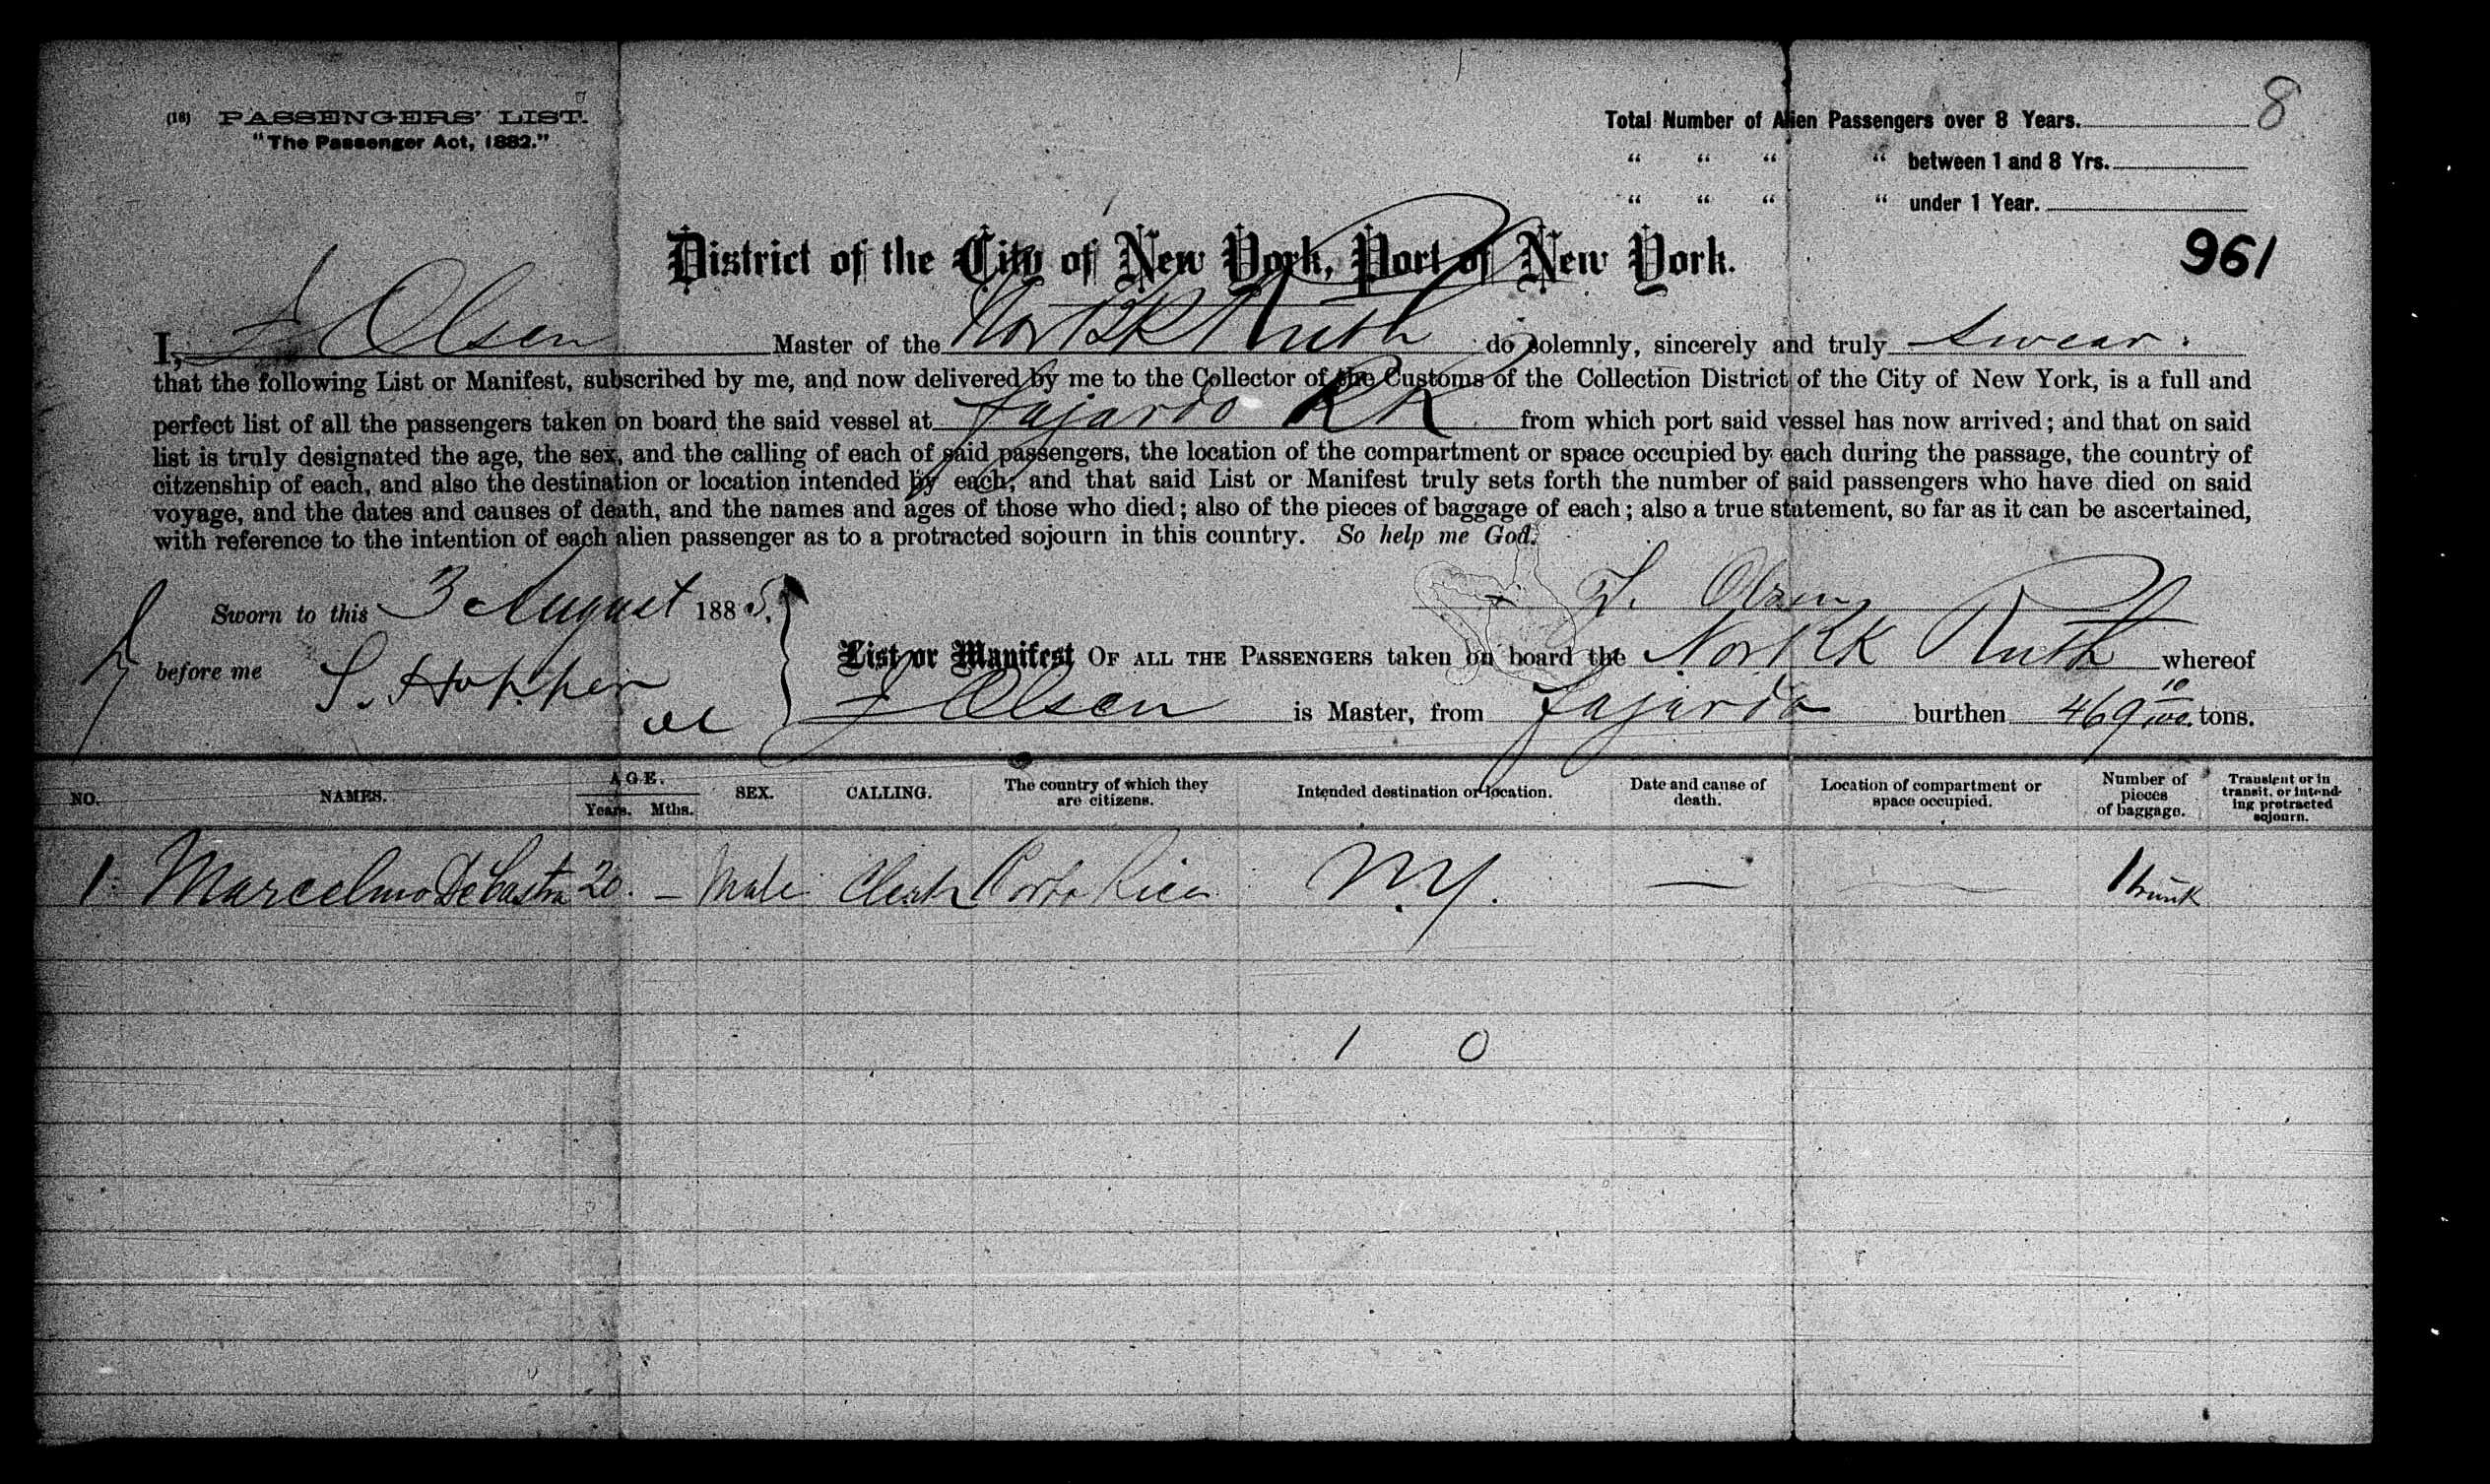 8
(18) PASSENGERS' LIST.
"The Passenger Act, 1882."
Total Number of Alien Passengers over 8 Years.
" " " " between 1 and 8 Yrs.
" " " " under 1 Year.
District of the City of New York, Port of New York.
961
I, Olsen Master of the Nor Bk Ruth do solemnly, sincerely and truly swear.
that the following List or Manifest, subscribed by me, and now delivered by me to the Collector of the Customs of the Collection District of the City of New York, is a full and
perfect list of all the passengers taken on board the said vessel at Fajardo from which port said vessel has now arrived; and that on said
list is truly designated the age, the sex, and the calling of each of said passengers, the location of the compartment or space occupied by each during the passage, the country of
citzenship of each, and also the destination or location intended by each; and that said List or Manifest truly sets forth the number of said passengers who have died on said
voyage, and the dates and causes of death, and the names and ages of those who died; also of the pieces of baggage of each; also a true statement, so far as it can be ascertained,
with reference to the intention of each alien passenger as to a protracted sojourn in this country. So help me God.
Sworn to this 3 August 1885.
Olsen
before me S. Hopper
List or Manifest OF ALL THE PASSENGERS taken on board the Nor Bk Ruth whereof
Olsen is Master, from Fajardo burthen 469 10/100 tons.
NO. NAMES. AGE. Years. Mths. SEX. CALLING. The country of which they are citizens. Intended destination or location. Date and cause of death. Location of compartment or space occupied. Number of pieces of baggage. Transient or in transit, or intending protracted sojourn.
1 Marcelino De Castro 20. – Male Clerk Porto Rico N.Y. — — 1 trunk
1 0